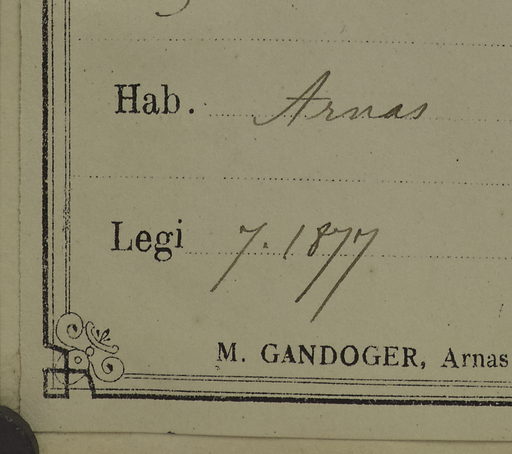 Hab. Arnas
Legi 7. 1877
M. GANDOGER, Arnas